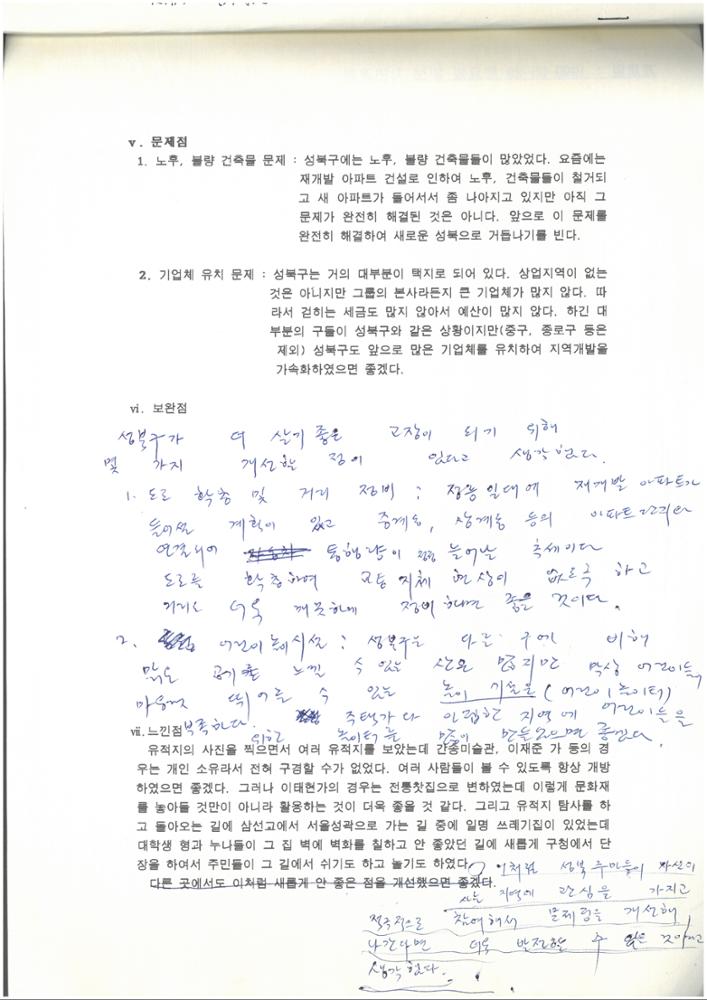 v. 문제점
1. 노후, 불량 건축물 문제 : 성북구에는 노후, 불량 건축물들이 많았었다. 요즘에는
재개발 아파트 건설로 인하여 노후, 건축물들이 철거되
고 새 아파트가 들어서서 좀 나아지고 있지만 아직 그
문제가 완전히 해결된 것은 아니다. 앞으로 이 문제를
완전히 해결하여 새로운 성북으로 거듭나기를 빈다.
2. 기업체 유치 문제 : 성북구는 거의 대부분이 택지로 되어 있다. 상업지역이 없는
것은 아니지만 그룹의 본사라든지 큰 기업체가 많지 않다. 따
라서 걷히는 세금도 많지 않아서 예산이 많지 않다. 하긴 대
부분의 구들이 성북구와 같은 상황이지만(중구, 종로구 등은
제외) 성북구도 앞으로 많은 기업체를 유치하여 지역개발을
가속화하였으면 좋겠다.
vi. 보완점
성북구가 더 살기 좋은 고장이 되기 위해
몇 가지 개선할 점이 있다고 생각했다.
1. 도로 확충 및 거리 정비 : 정릉일대에 재개발 아파트가
들어설 계획이 있고 중계동, 상계동 등의 아파트 단지와
연결되어 통행량이 점점 늘어날 추세이다
도로를 확충하여 교통 지체 현상이 없도록 하고
거리도 더욱 깨끗하게 정비하면 좋을 것이다.
2. 어린이 놀이시설 : 성북구는 다른 구에 비해
맑은 공기를 느낄 수 있는 산은 많지만 막상 어린이들이
마음껏 뛰어놀 수 있는 놀이 시설은 (어린이 놀이터)
부족하다. 주택가 다 밀집한 지역에 어린이들을
위한 놀이터를 많이 만들었으면 좋겠다.
vii. 느낀점
유적지의 사진을 찍으면서 여러 유적지를 보았는데 간송미술관, 이재준 가 등의 경
우는 개인 소유라서 전혀 구경할 수가 없었다. 여러 사람들이 볼 수 있도록 항상 개방
하였으면 좋겠다. 그러나 이태현가의 경우는 전통찻집으로 변하였는데 이렇게 문화재
를 놓아둘 것만이 아니라 활용하는 것이 더욱 좋을 것 같다. 그리고 유적지 탐사를 하
고 돌아오는 길에 삼선교에서 서울성곽으로 가는 길 중에 일명 쓰레기집이 있었는데
대학생 형과 누나들이 그 집 벽에 벽화를 칠하고 안 좋았던 길에 새롭게 구청에서 단
장을 하여서 주민들이 그 길에서 쉬기도 하고 놀기도 하였다.
다른 곳에서도 이처럼 새롭게 안 좋은 점을 개선했으면 좋겠다.
이처럼 성북 주민들이 자신이
사는 지역에 관심을 가지고
적극적으로 참여해서 문제점을 개선해
나간다면 더욱 발전할 수 있을 것이라고
생각했다.